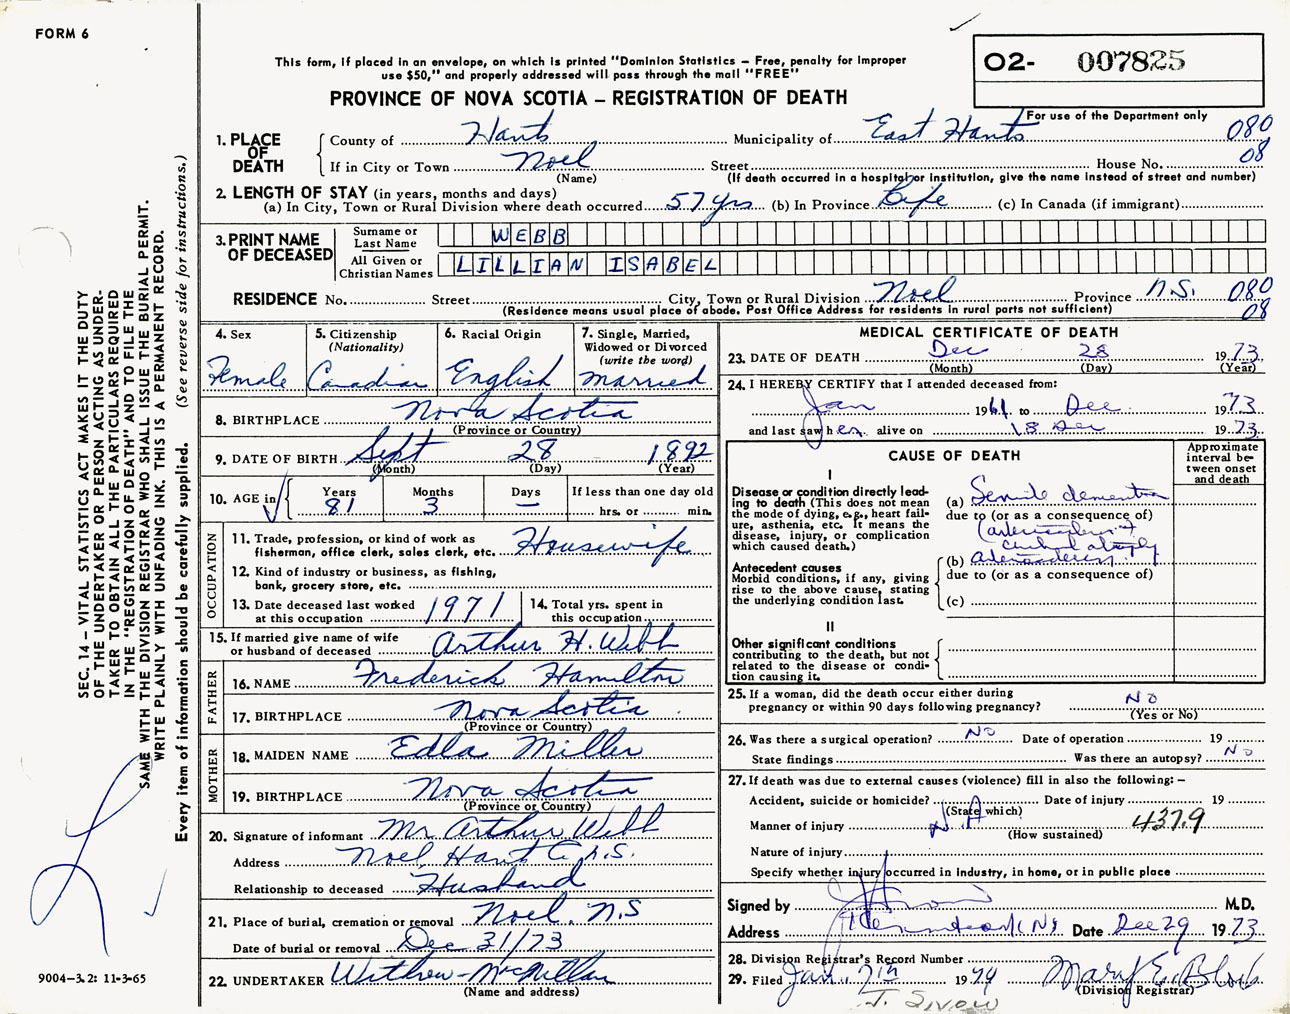 FORM 6
This form, if placed in an envelope, on which is printed "Dominion Statistics – Free, penalty for improper
use $50," and properly addressed will pass through the mail "FREE"
O2- 007825
PROVINCE OF NOVA SCOTIA – REGISTRATION OF DEATH
For use of the Department only
1. PLACE OF DEATH
County of Hants Municipality of East Hants 080
If in City or Town Noel Street House No. 08
(Name) (If death occurred in a hospital or institution, give the name instead of street and number)
2. LENGTH OF STAY (in years, months and days)
(a) In City, Town or Rural Division where death occurred 57 yrs (b) In Province Life (c) In Canada (if immigrant)
3. PRINT NAME OF DECEASED
Surname or Last Name WEBB
All Given or Christian Names LILLIAN ISABEL
RESIDENCE No. Street City, Town or Rural Division Noel Province N.S. 080
(Residence means usual place of abode. Post Office Address for residents in rural parts not sufficient) 08
4. Sex Female
5. Citizenship (Nationality) Canadian
6. Racial Origin English
7. Single, Married, Widowed or Divorced (write the word) Married
8. BIRTHPLACE Nova Scotia
(Province or Country)
9. DATE OF BIRTH Sept 28 1892
(Month) (Day) (Year)
10. AGE in Years 81 Months 3 Days — If less than one day old
hrs. or min.
OCCUPATION
11. Trade, profession, or kind of work as
fisherman, office clerk, sales clerk, etc. Housewife
12. Kind of industry or business, as fishing,
bank, grocery store, etc.
13. Date deceased last worked
at this occupation 1971
14. Total yrs. spent in
this occupation
15. If married give name of wife
or husband of deceased Arthur H. Webb
FATHER
16. NAME Frederick Hamilton
17. BIRTHPLACE Nova Scotia
(Province or Country)
MOTHER
18. MAIDEN NAME Edla Miller
19. BIRTHPLACE Nova Scotia
(Province or Country)
20. Signature of informant Mr Arthur Webb
Address Noel, Hants Co. N.S.
Relationship to deceased Husband
21. Place of burial, cremation or removal Noel. N.S
Date of burial or removal Dec 31/73
22. UNDERTAKER Withrow - McMillan
(Name and address)
MEDICAL CERTIFICATE OF DEATH
23. DATE OF DEATH Dec 28 1973
(Month) (Day) (Year)
24. I HEREBY CERTIFY that I attended deceased from:
Jan 1961 to Dec 1973
and last saw her alive on 18 Dec 1973
CAUSE OF DEATH
Approximate interval between onset and death
I
Disease or condition directly leading
to death (This does not mean
the mode of dying, e.g., heart failure,
asthenia, etc. It means the
disease, injury, or complication
which caused death.)
(a) Senile dementia
due to (or as a consequence of)
Antecedent causes
Morbid conditions, if any, giving
rise to the above cause, stating
the underlying condition last.
(b)
due to (or as a consequence of)
(c)
II
Other significant conditions
contributing to the death, but not
related to the disease or condition
causing it.
25. If a woman, did the death occur either during
pregnancy or within 90 days following pregnancy? No
(Yes or No)
26. Was there a surgical operation? No Date of operation 19
State findings Was there an autopsy? No
27. If death was due to external causes (violence) fill in also the following: –
Accident, suicide or homicide? Date of injury 19
(State which)
Manner of injury N.A 437.9
(How sustained)
Nature of injury
Specify whether injury occurred in industry, in home, or in public place
Signed by M.D.
Address Date Dec 29 1973
28. Division Registrar's Record Number
29. Filed Jan. 7th 1974 Mary E.
(Division Registrar)
SEC. 14 – VITAL STATISTICS ACT MAKES IT THE DUTY
OF THE UNDERTAKER OR PERSON ACTING AS UNDERTAKER
TO OBTAIN ALL THE PARTICULARS REQUIRED
IN THE "REGISTRATION OF DEATH" AND TO FILE THE
SAME WITH THE DIVISION REGISTRAR WHO SHALL ISSUE THE BURIAL PERMIT.
WRITE PLAINLY WITH UNFADING INK. THIS IS A PERMANENT RECORD.
Every item of information should be carefully supplied. (See reverse side for instructions.)
9004-3.2: 11-3-65